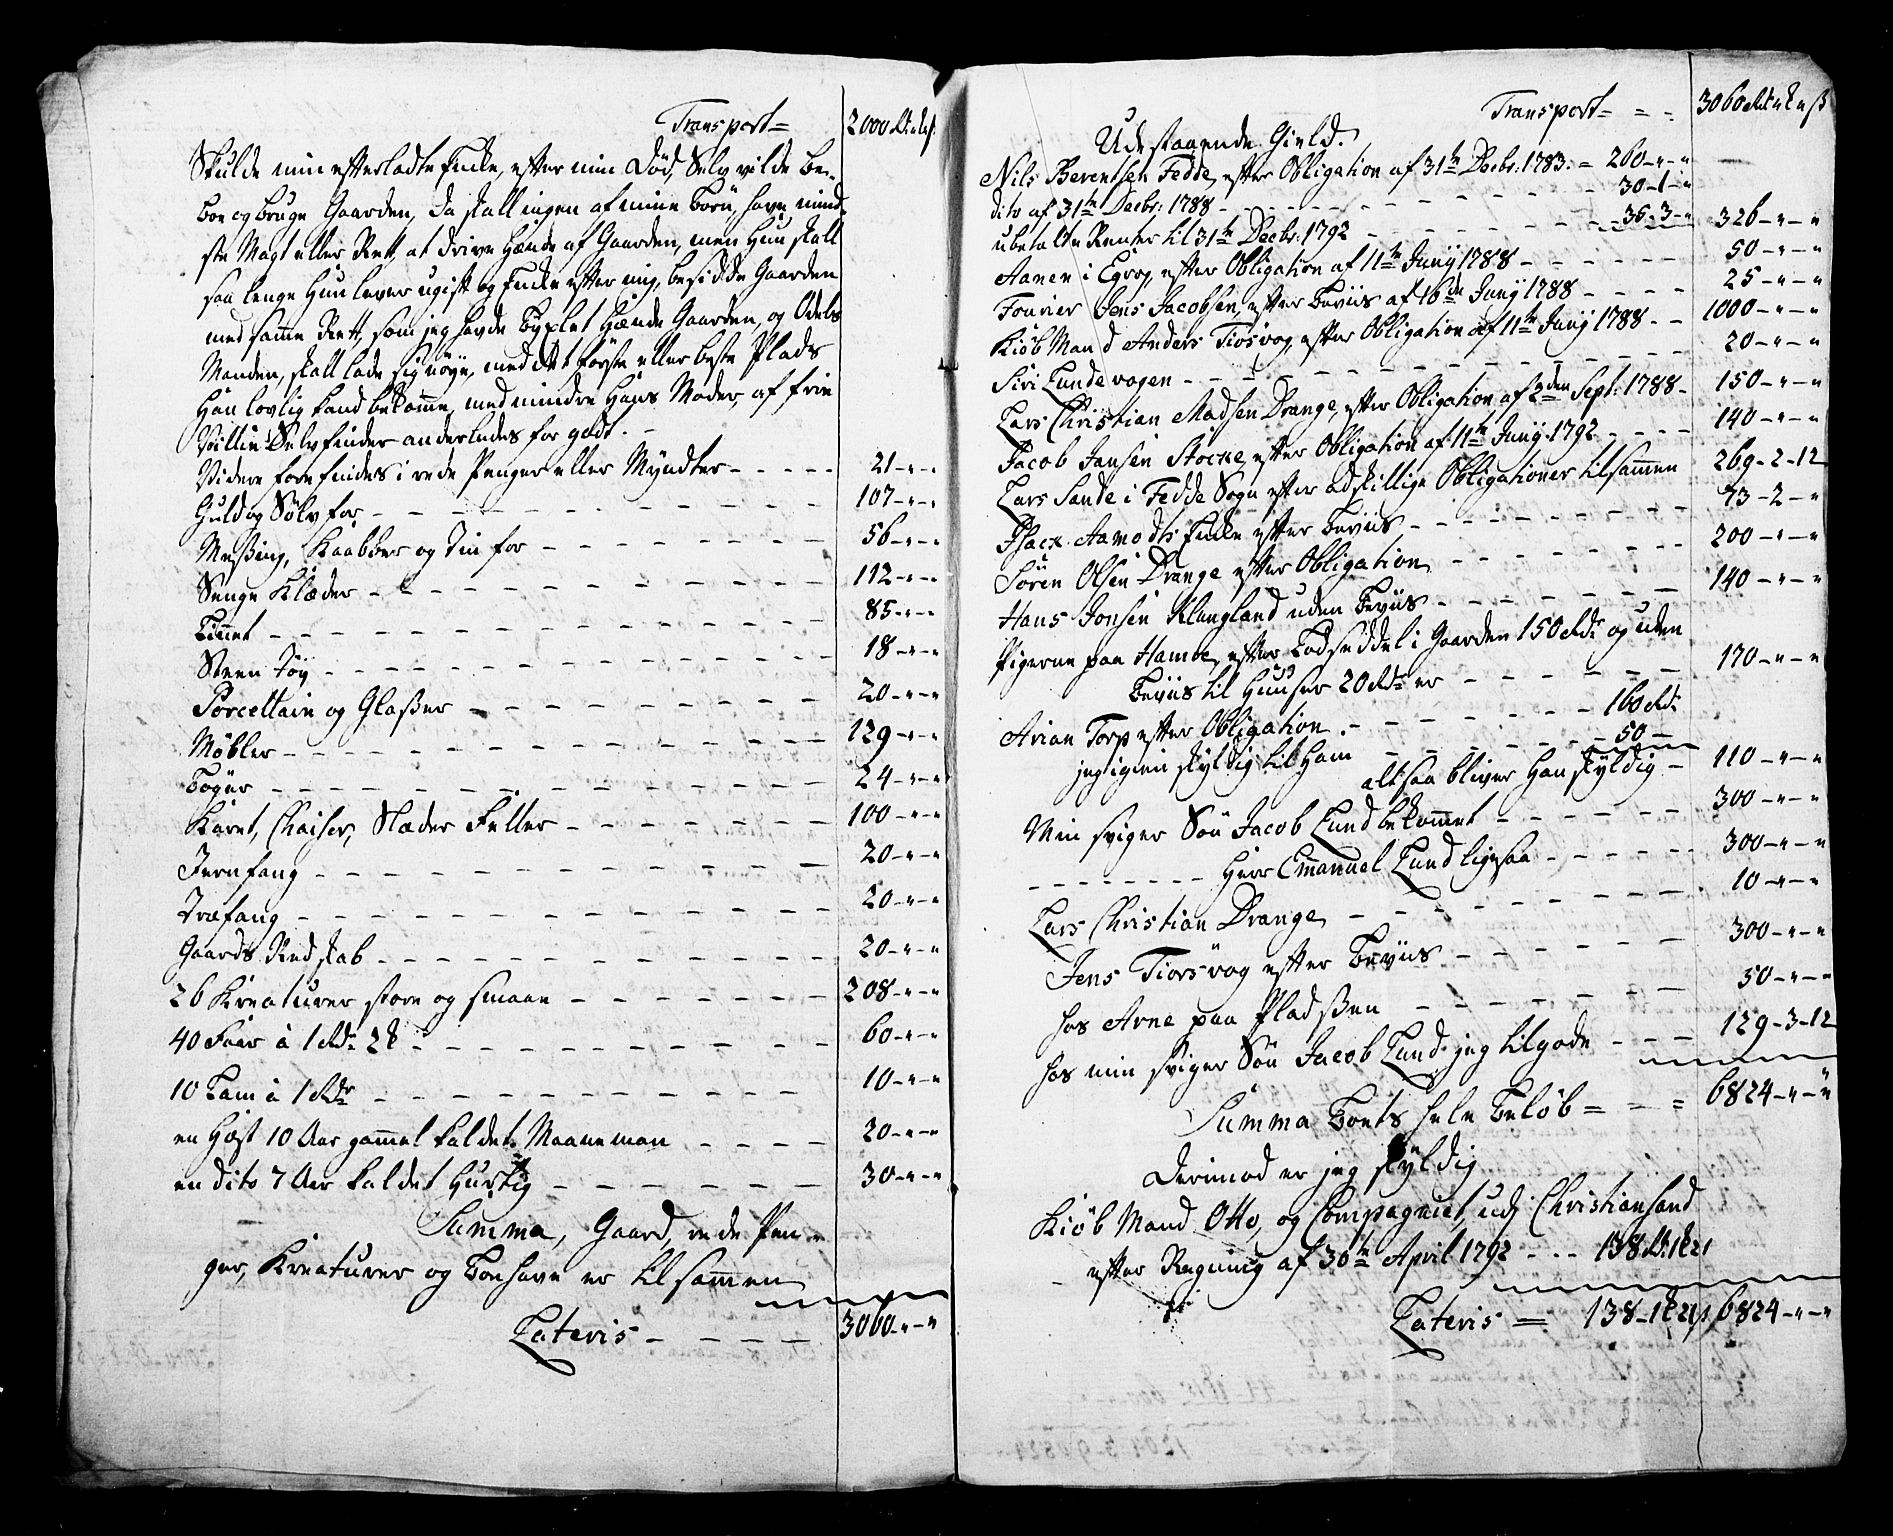 Transport = 2000 Rdr „ „
Skulde min efterladte Enke, efter min Död, Selv vilde be-
boe og bruge Gaarden, da skall ingen af mine Börn, have mind-
ste Magt eller Rett, at drive Hænde af Gaarden, men Hun skall
saa lenge Hun lever ugift og Enke efter mig, besidde Gaarden
med samme Rett, som jeg havde Byxlet Hænde Gaarden, og Odels
Manden, skall lade sig nöye, med det förste eller beste Plads
Han lovlig kand bekomme, med mindre Hans Moder, af frie
Villie Selv finder anderledes for godt. -
Videre forefindes i rede Penger eller Myndter - - - - - 21 - „ - „
Guld og Sölv for - - - - - 107 - „ - „
Messing, Kaabber og Tin for - - - - - 56 - „ - „
Senge Klæder - - - - - 112 - „ - „
Linnet - - - - - 85 - „ - „
Steen Töy - - - - - 18 - „ - „
Porcellain og Glasser - - - - - 20 - „ - „
Möbler - - - - - 129 - „ - „
Böger - - - - - 24 - „ - „
Karet, Chaiser, Slæder Feller - - - - - 100 - „ - „
Jernfang - - - - - 20 - „ - „
Træfang - - - - - 20 - „ - „
Gaards Redskab - - - - - 20 - „ - „
26 Kreaturer store og smaae - - - - - 208 - „ - „
40 Faar à 1 Rdr 2 - - - - - 60 - „ - „
10 Lam à 1 Rdr - - - - - 10 - „ - „
en Hest 10 Aar gammel kaldet Maaneman - - - - 20 - „ - „
en dito 7 Aar kaldet Hurtig - - - - - 30 - „ - „
Summa, Gaard, rede Pen-
ger, Kreaturer og Boehave er tilsammen
Lateris - - - - - 3060 - „ - „
Transport = = = 3060 Rdr „ „ ß
Udestaaende Gield.
Nils Berentsen Fedde, efter Obligation af 31te Decbr: 1783. = 260 - „ - „
dito af 31te Decbr: 1788 - - - - - 30 - 1 - „
ubetalte Renter til 31te Decbr: 1792 - - - - - 35 - 3 - „ 326 - „ - „
Aanen i Egrog, efter Obligation af 11te Junÿ 1788 - - - - - 50 - „ - „
Fourier Jens Jacobsen, efter Beviis af 16de Junÿ 1788 - - - - 25 - „ - „
Kiöb Mand Anders Tiorsvog, efter Obligation af 11te Junÿ 1788 - - 1000 - „ - „
Siri Lundevogen - - - - - 20 - „ - „
Lars Christian Madsen Drange, efter Obligation af 2den Sept: 1788 - 150 - „ - „
Jacob Jansen Stocke, efter Obligation af 11te Junÿ 1792 - - - - 140 - „ - „
Lars Sande i Fedde Sogn efter adskillige Obligationer tilsammen 269 - 2 - 12
Isack Aamodts Enke efter Beviis - - - - - 73 - 2 - „
Sören Olsen Drange efter Obligation - - - - - 200 - „ - „
Hans Jonsen Klungland uden Beviis - - - - - 140 - „ - „
Pigerne paa Hamre, efter Lodseddel i Gaarden 150 Rdr og uden
Beviis til Huuser 20 Rdr er - - - - - 170 - „ - „
Arian Torp efter Obligation. - - - - - 160 Rdr
jeg igien skyldig til Ham - - - - - 50 -
altsaa bliver Han skyldig - 110 - „ - „
Min sviger Sön Jacob Lund bekommet - - - - - 300 - „ - „
- - - - - Herr Emanuel Lund ligesaa - - - - - 300 - „ - „
Lars Christian Drange - - - - - 10 - „ - „
Jens Tiorsvog efter Beviis - - - - - 300 - „ - „
hos Arne paa Pladssen - - - - - 50 - „ - „
hos min sviger Sön Jacob Lund jeg tilgode - - - - 129 - 3 - 12
Summa Boets hele Belöb = - = 6824 - „ - „
Derimod er jeg skÿldig
Kiöb Mand Otto, og Compagniet udj Christiansand
efter Regning af 30te April 1792 - - - 138 Rd: 1 21
Lateris = 138 - 1 21 ß 6824 - „ - „